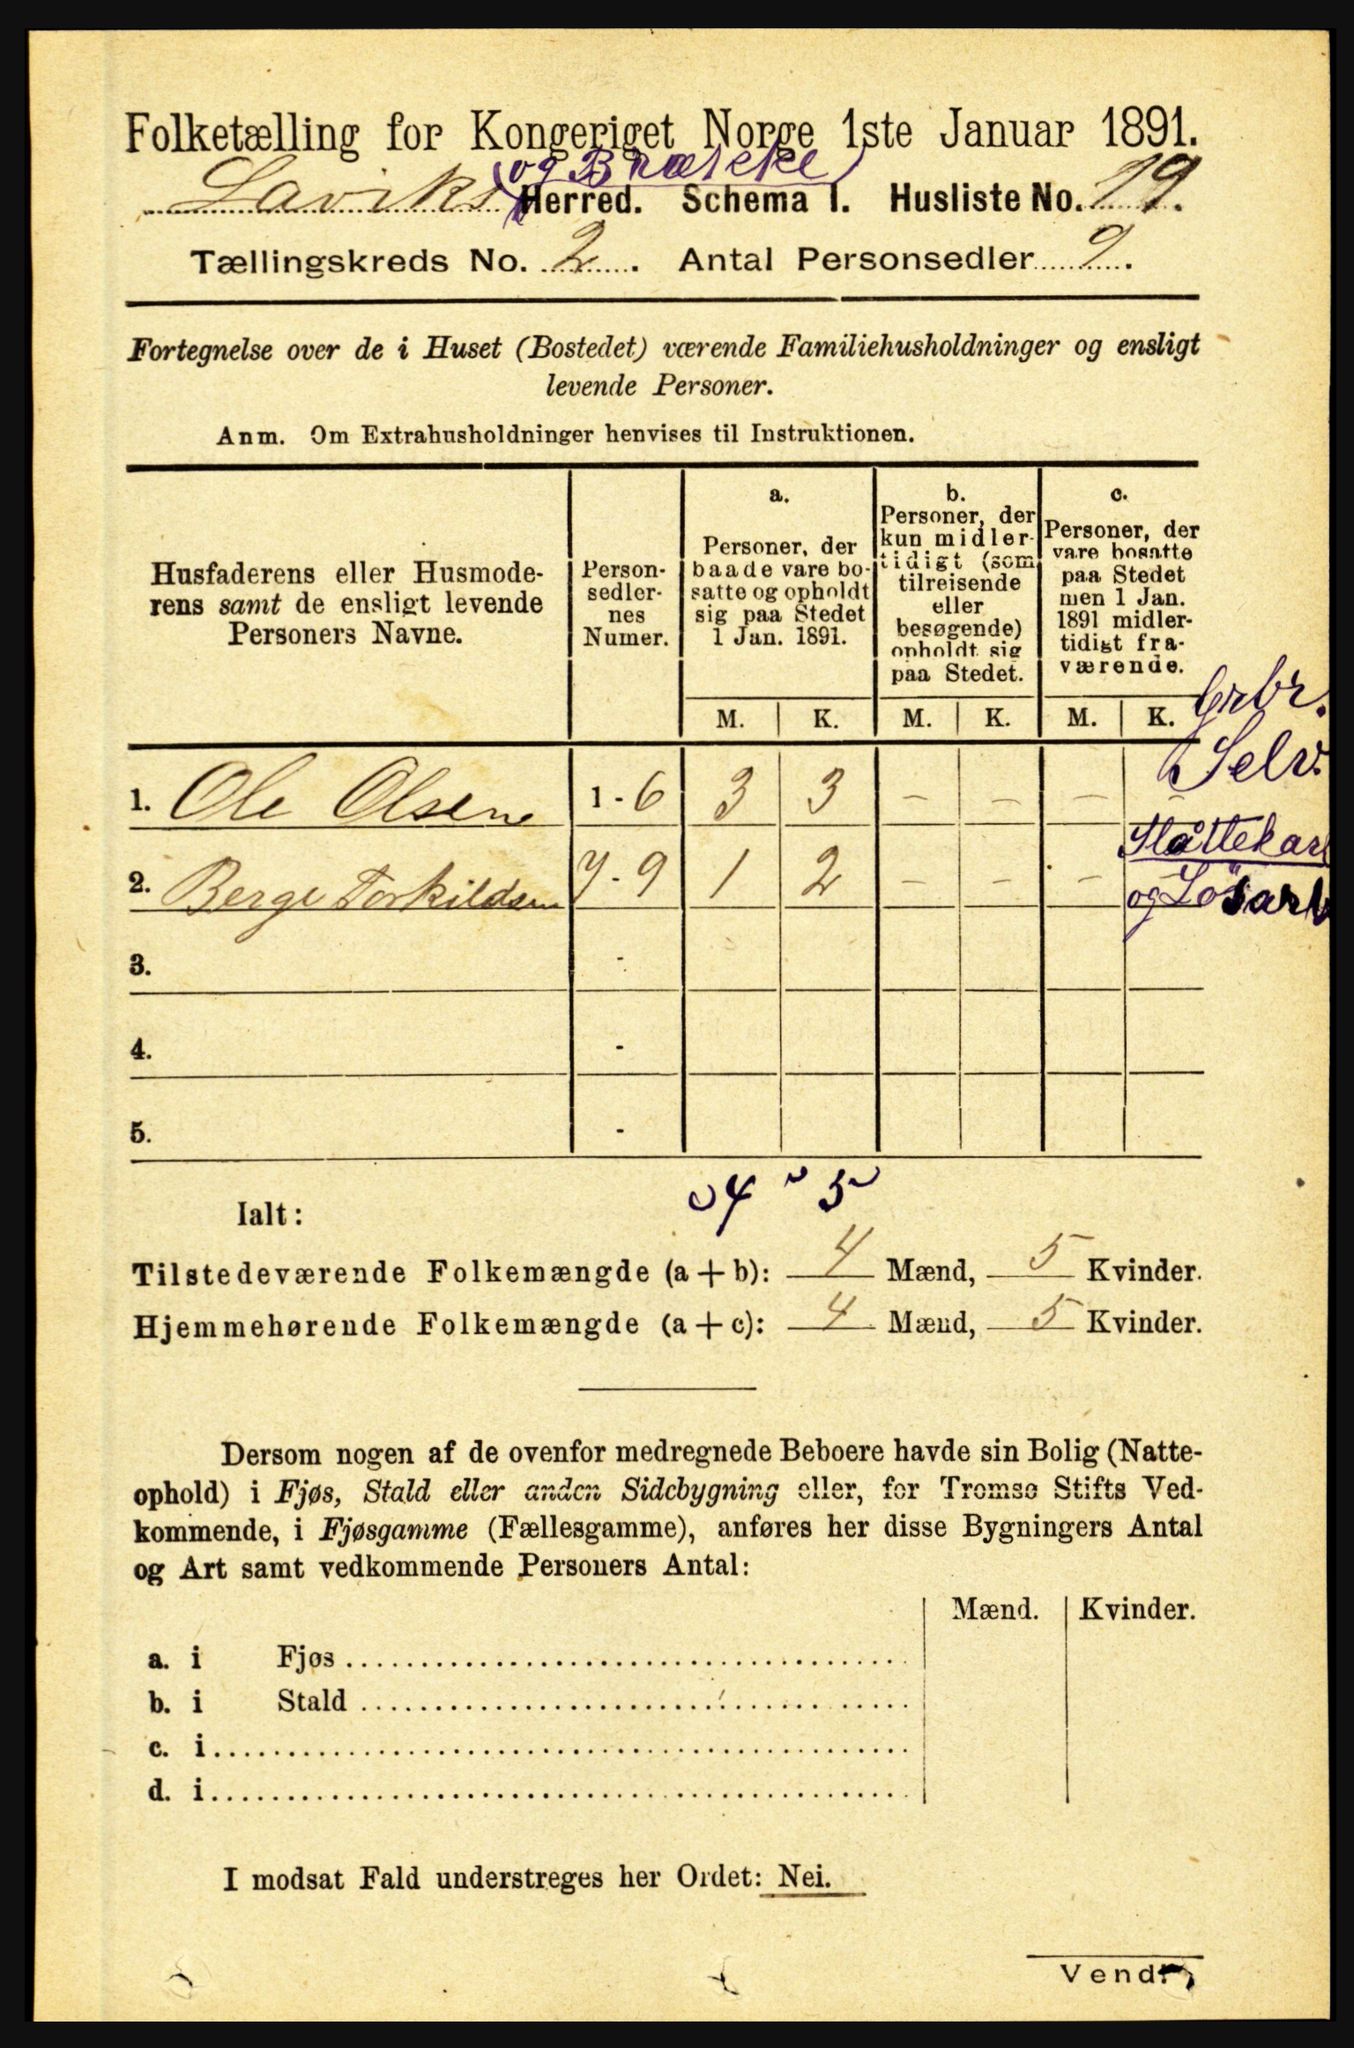 Folketælling for Kongeriget Norge 1ste Januar 1891.
(og Brække)
Laviks Herred. Schema I. Husliste No. 19.
Tællingskreds No. 2. Antal Personsedler 9.
Fortegnelse over de i Huset (Bostedet) værende Familiehusholdninger og ensligt
levende Personer.
Anm. Om Extrahusholdninger henvises til Instruktionen.
Husfaderens eller Husmode-
rens samt de ensligt levende
Personers Navne.
Person-
sedler-
nes
Numer.
a.
Personer, der
baade vare bo-
satte og opholdt
sig paa Stedet
1 Jan. 1891.
b.
Personer, der
kun midler-
tidigt (som
tilreisende
eller
besøgende)
opholdt sig
paa Stedet.
c.
Personer, der
vare bosatte
paa Stedet
men 1 Jan.
1891 midler-
tidigt fra-
værende.
M. K. M. K. M. K.
Grbr.
Selv.
1. Ole Olsen 1 - 6 3 3 - - - -
Slåttekarl
2. Berge Torkildsen 7 - 9 1 2 - - -
og Løsarb
3. -
4. -
5. -
4 5
Ialt:
Tilstedeværende Folkemængde (a + b): 4 Mænd, 5 Kvinder.
Hjemmehørende Folkemængde (a + c): 4 Mænd, 5 Kvinder.
Dersom nogen af de ovenfor medregnede Beboere havde sin Bolig (Natte-
ophold) i Fjøs, Stald eller anden Sidebygning eller, for Tromsø Stifts Ved-
kommende, i Fjøsgamme (Fællesgamme), anføres her disse Bygningers Antal
og Art samt vedkommende Personers Antal:
Mænd. Kvinder.
a. i Fjøs
b. i Stald
c. i
d. i
I modsat Fald understreges her Ordet: Nei.
Vend!